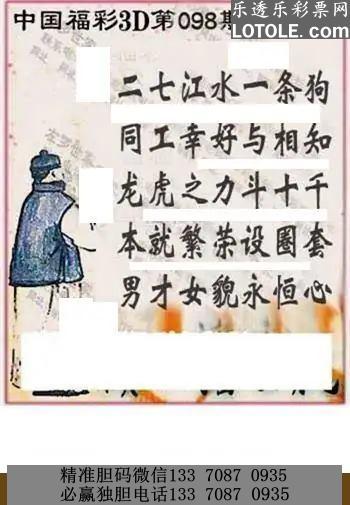 中国福彩3D第098期
乐透乐彩票网
LOTOLE.COM
二七江水一条狗
同工幸好与相知
龙虎之力斗十千
本就繁荣设圈套
男才女貌永恒心
精准胆码微信133 7087 0935
必赢独胆电话133 7087 0935